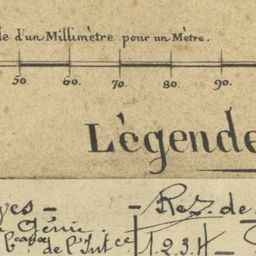 le d'un Millimètre pour un Mètre.
50. 60. 70. 80. 90.
Légende
ves - - Rez. de
Génie.
de l'Int.ce 1.2.3.4